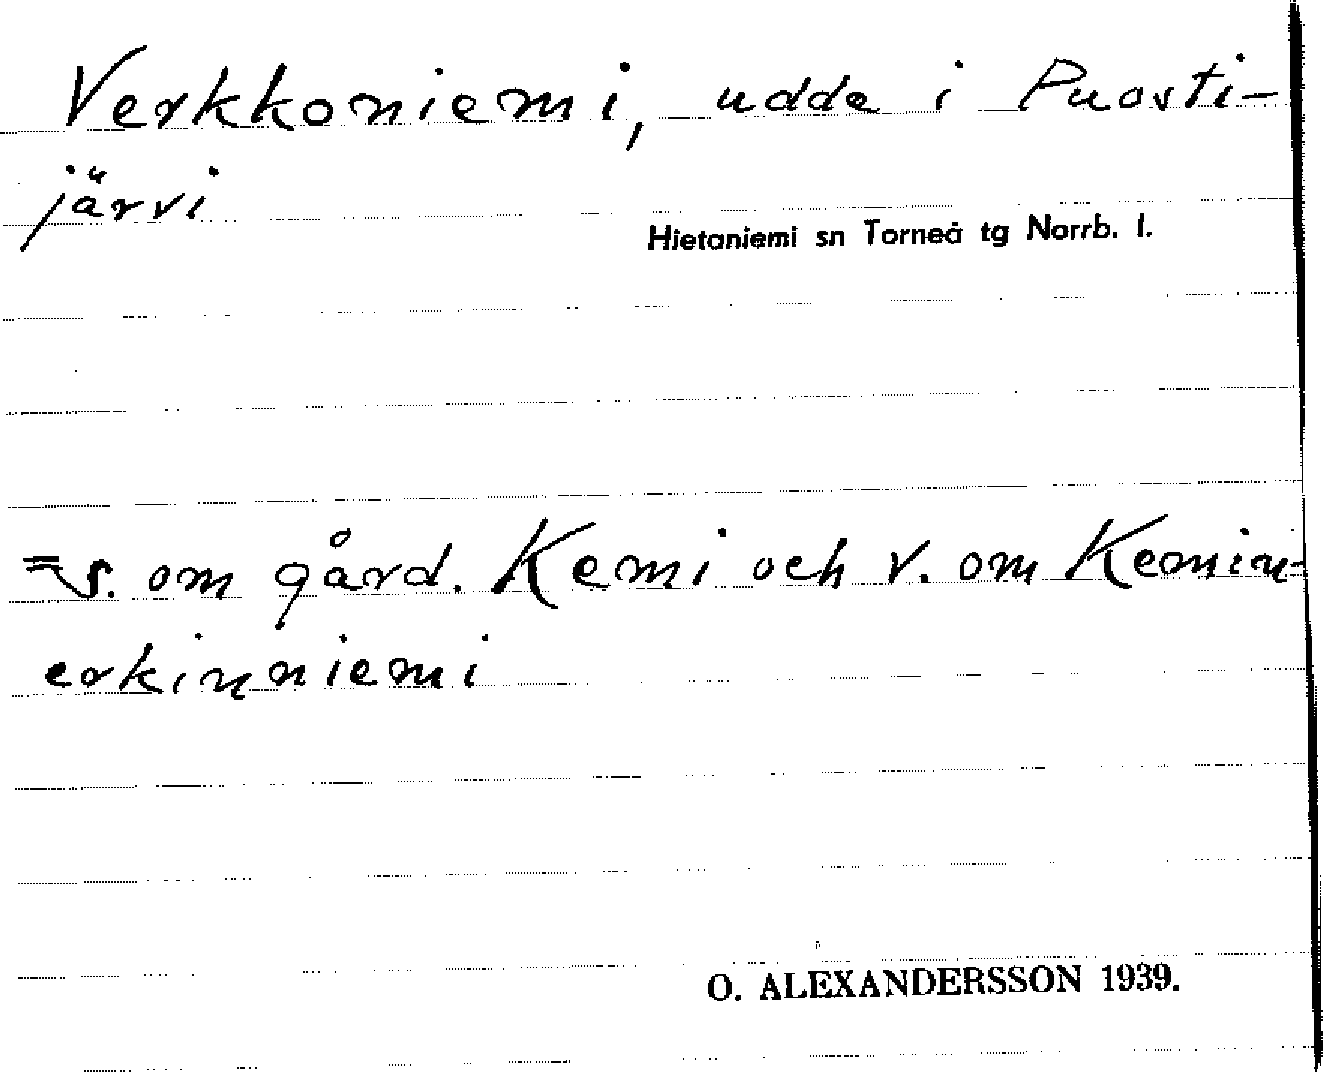 Verkkoniemi, udde i Puosti-
järvi
Hietaniemi sn Torneå tg Norrb. l.
s. om gård. Kemi och v. om Kemin-
erkinniemi
O. ALEXANDERSSON 1939.